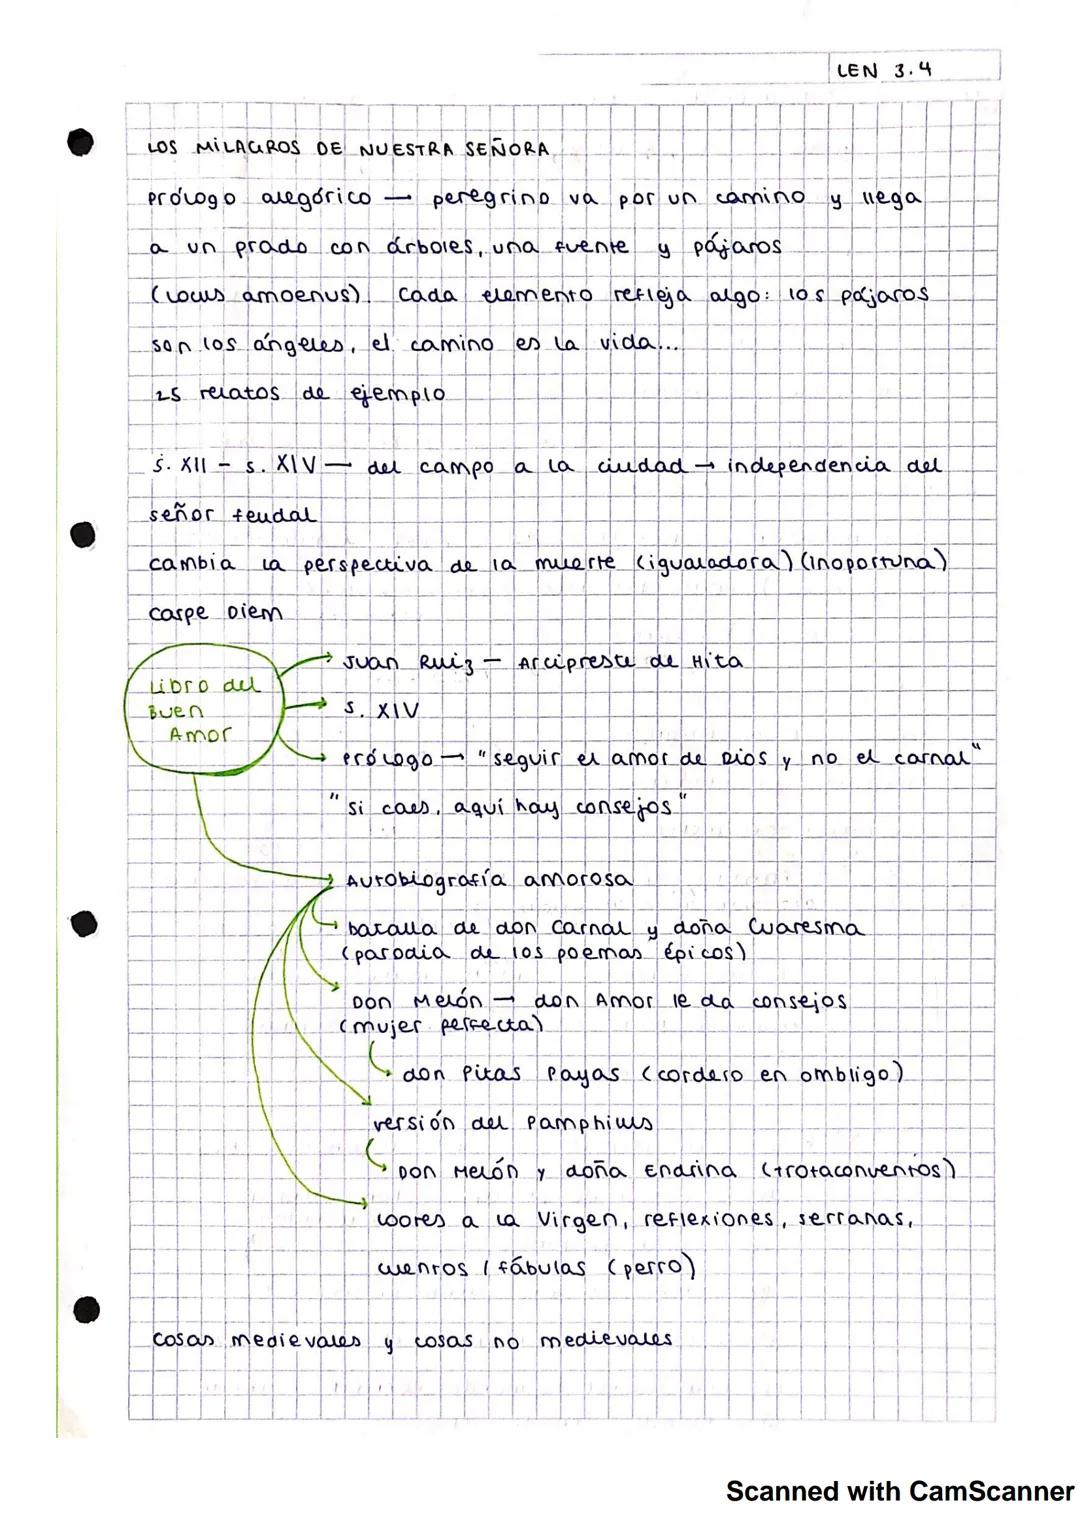 LEN 3.4
LOS MILAGROS DE NUESTRA SEÑORA
prólogo alegórico — peregrino va por un camino y llega
a un prado con árboles, una fuente y pájaros
(locus amoenus). Cada elemento refleja algo: los pájaros
son los ángeles, el camino es la vida...
25 relatos de ejemplo
s. XII - s. XIV — del campo a la ciudad → independencia del
señor feudal
cambia la perspectiva de la muerte (igualadora) (inoportuna)
carpe Diem
Libro del
Buen
Amor
Juan Ruiz — Arcipreste de Hita
s. XIV
Prólogo → "seguir el amor de Dios y no el carnal"
"si caes, aquí hay consejos"
Autobiografía amorosa
batalla de don Carnal y doña Cuaresma
(parodia de los poemas épicos)
Don Melón → don Amor le da consejos
(mujer perfecta)
don Pitas Payas (cordero en ombligo)
versión del Pamphilus
Don Melón y doña Endrina (trotaconventos)
loores a la Virgen, reflexiones, serranas,
cuentos / fábulas (perro)
cosas medievales y cosas no medievales
Scanned with CamScanner